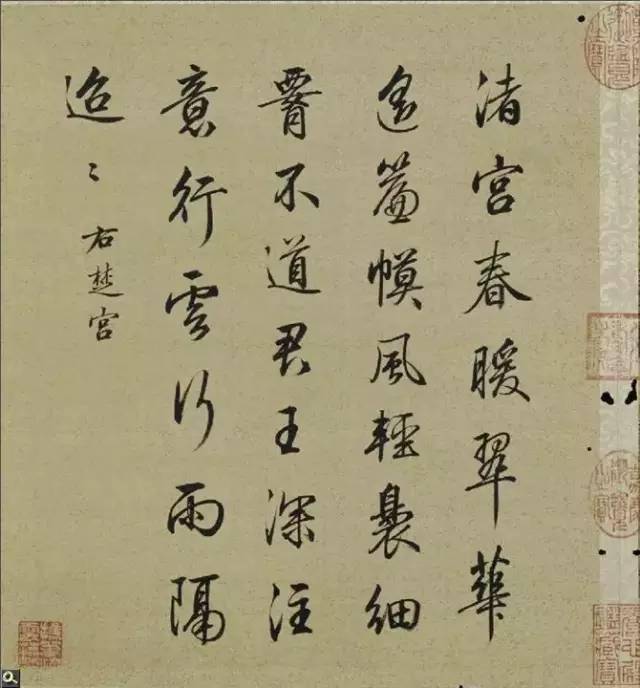 渚宮春暖翠華
遙簾幙風輕裊細
𦝫不道君王深注
意行雲行雨隔
迢〻
右楚宮